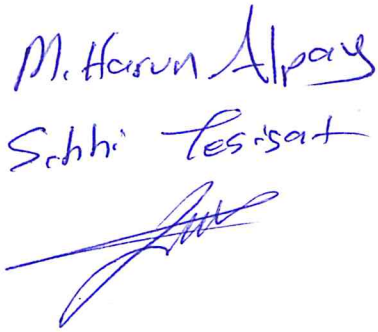 M. Harun Alpay
Sıhhi Tesisat